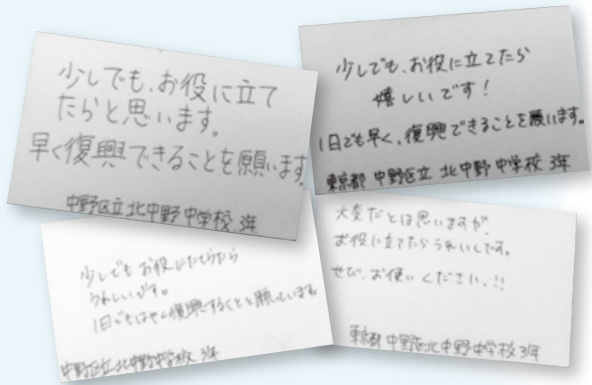 少しでも、お役に立て
たらと思います。
早く復興できることを願います
中野区立北中野中学校 3年
少しでも、お役に立てたら
嬉しいです!
1日でも早く、復興できることを願います。
東京都 中野区立 北中野中学校 3年
少しでもお役にたてたら
うれしいです。
1日でもはやく復興することを願っています
中野区立北中野中学校 3年
大変だとは思いますが、
お役に立てたらうれしいです。
ぜひ、お使いください!!
東京都 中野区北中野中学校3年